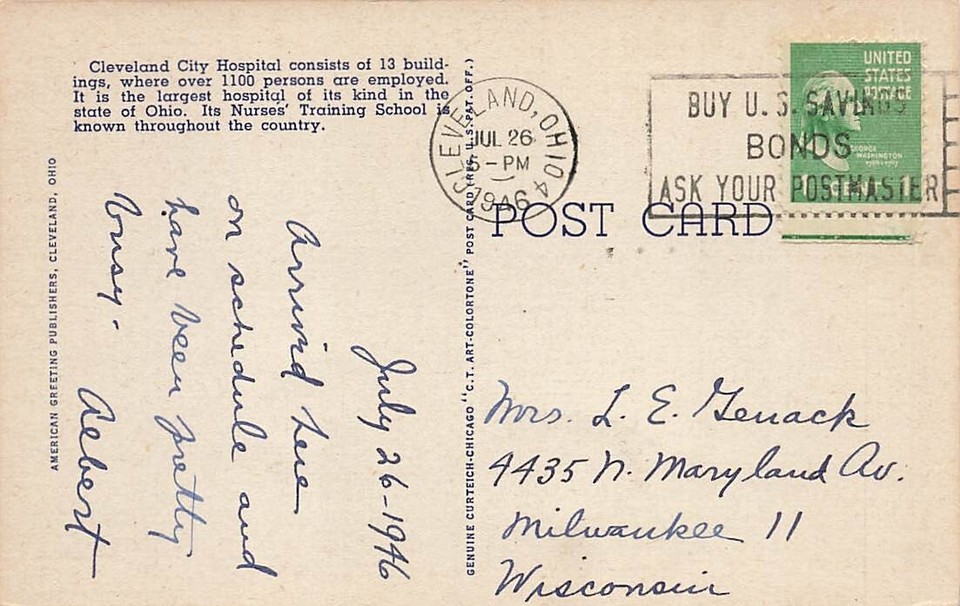 Cleveland City Hospital consists of 13 build-
ings, where over 1100 persons are employed.
It is the largest hospital of its kind in the
state of Ohio. Its Nurses' Training School is
known throughout the country.
AMERICAN GREETING PUBLISHERS, CLEVELAND, OHIO
July 26-1946
Arrived here
on schedule and
have been pretty
busy.
Albert
GENUINE CURTEICH-CHICAGO "C.T. ART-COLORTONE" POST CARD (REG. U.S. PAT. OFF.)
CLEVELAND, OHIO 4
JUL 26
5-PM
1946
BUY U.S. SAVINGS
BONDS
ASK YOUR POSTMASTER
UNITED
STATES
POSTAGE
GEORGE
WASHINGTON
1 CENT 1
POST CARD
Mrs. L. E. Genack
4435 N. Maryland Av.
Milwaukee 11
Wisconsin